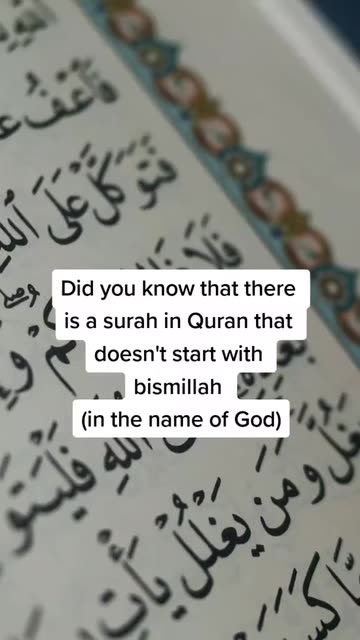 فَٱعْفُ
فَتَوَكَّلْ عَلَى ٱللَّهِ
فَلَا
Did you know that there
is a surah in Quran that
doesn't start with
bismillah
(in the name of God)
ٱللَّهِ
يَغُلَّ وَمَن يَغْلُلْ يَأْتِ